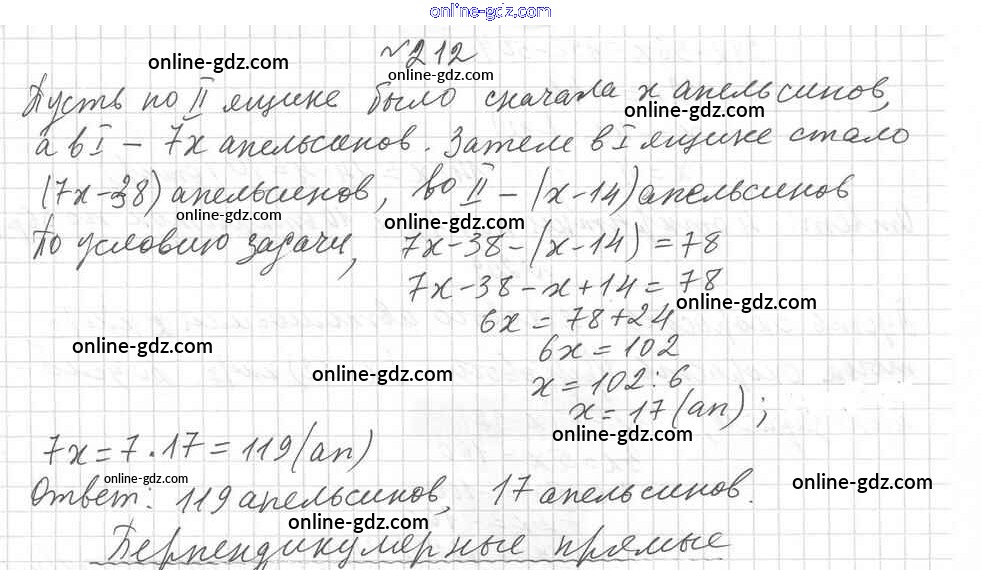 online-gdz.com
№212
online-gdz.com
online-gdz.com
Пусть во II ящике было сначала x апельсинов,
online-gdz.com
а в I – 7x апельсинов. Затем в I ящике стало
online-gdz.com
(7x-38) апельсинов, во II – (x-14) апельсинов
online-gdz.com
online-gdz.com
По условию задачи, 7x-38-(x-14)=78
7x-38-x+14=78
online-gdz.com
6x=78+24
online-gdz.com
6x=102
online-gdz.com
x=102:6
x=17(ап);
online-gdz.com
7x=7·17=119(ап)
online-gdz.com
online-gdz.com
Ответ: 119 апельсинов, 17 апельсинов.
online-gdz.com
Перпендикулярные прямые